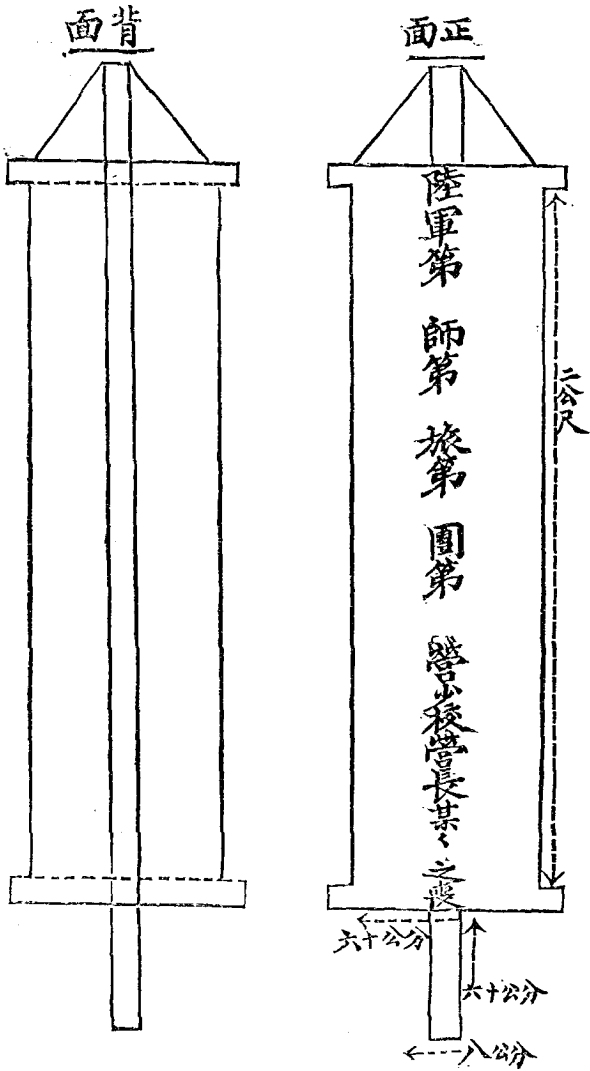 正面
陸軍第　師第　旅第　團第　營少校營長某々之喪
二公尺
六十公分
六十公分
八公分
背面